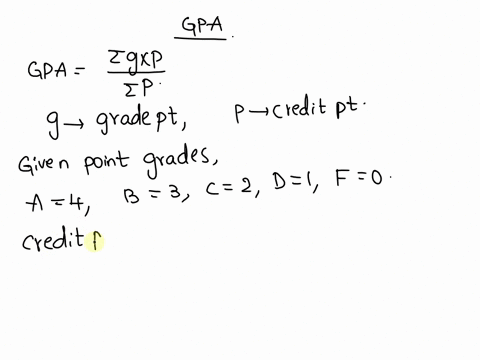 GPA.
GPA = Σg×p / ΣP.
g → grade pt, P → credit pt.
Given point grades,
A = 4, B = 3, C = 2, D = 1, F = 0.
credit